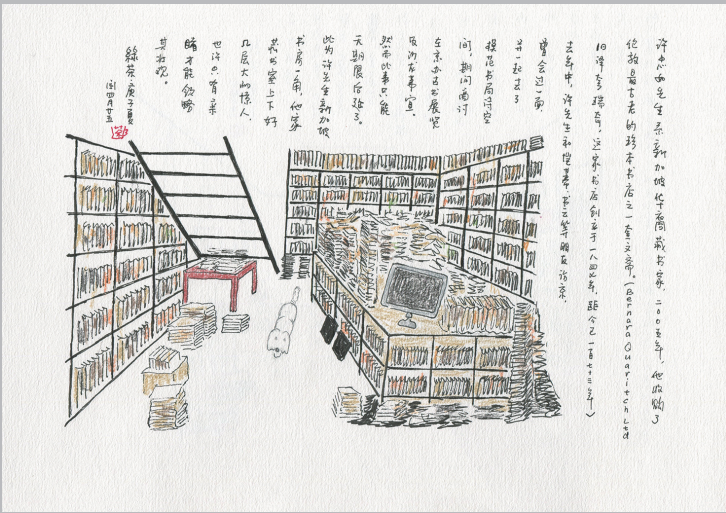 许忠如先生乃新加坡华裔藏书家，二〇〇五年，他收购了
伦敦最古老的珍本书店之一奎文斋。(Bernard Quaritch Ltd
旧译夸瑞奇，这家书店创立于一八四七年，距今已一百七十三年)
去年中，许先生和 等朋友访京，
曾会过一面，
并一起去了
模范书局诗空
间，期间商讨
在京办古书展览
及沙龙事宜。
然而此事只能
无期限后延了。
此为许先生新加坡
书房一角，他家
藏书室上下好
几层大的惊人，
也许只有亲
睹才能领略
其壮观。
绿茶 庚子夏
闰四月廿五